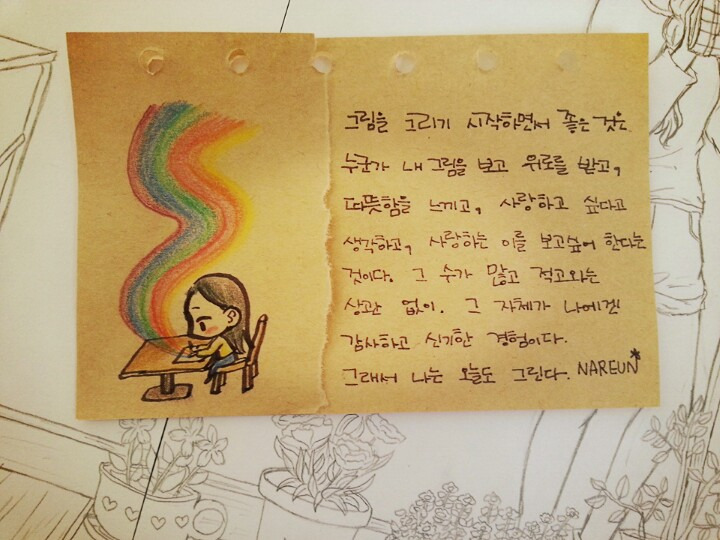 그림을 그리기 시작하면서 좋은 것은
누군가 내 그림을 보고 위로를 받고,
따뜻함을 느끼고, 사랑하고 싶다고
생각하고, 사랑하는 이를 보고싶어 한다는
것이다. 그 수가 많고 적고와는
상관 없이. 그 자체가 나에겐
감사하고 신기한 경험이다.
그래서 나는 오늘도 그린다. NAREUN*